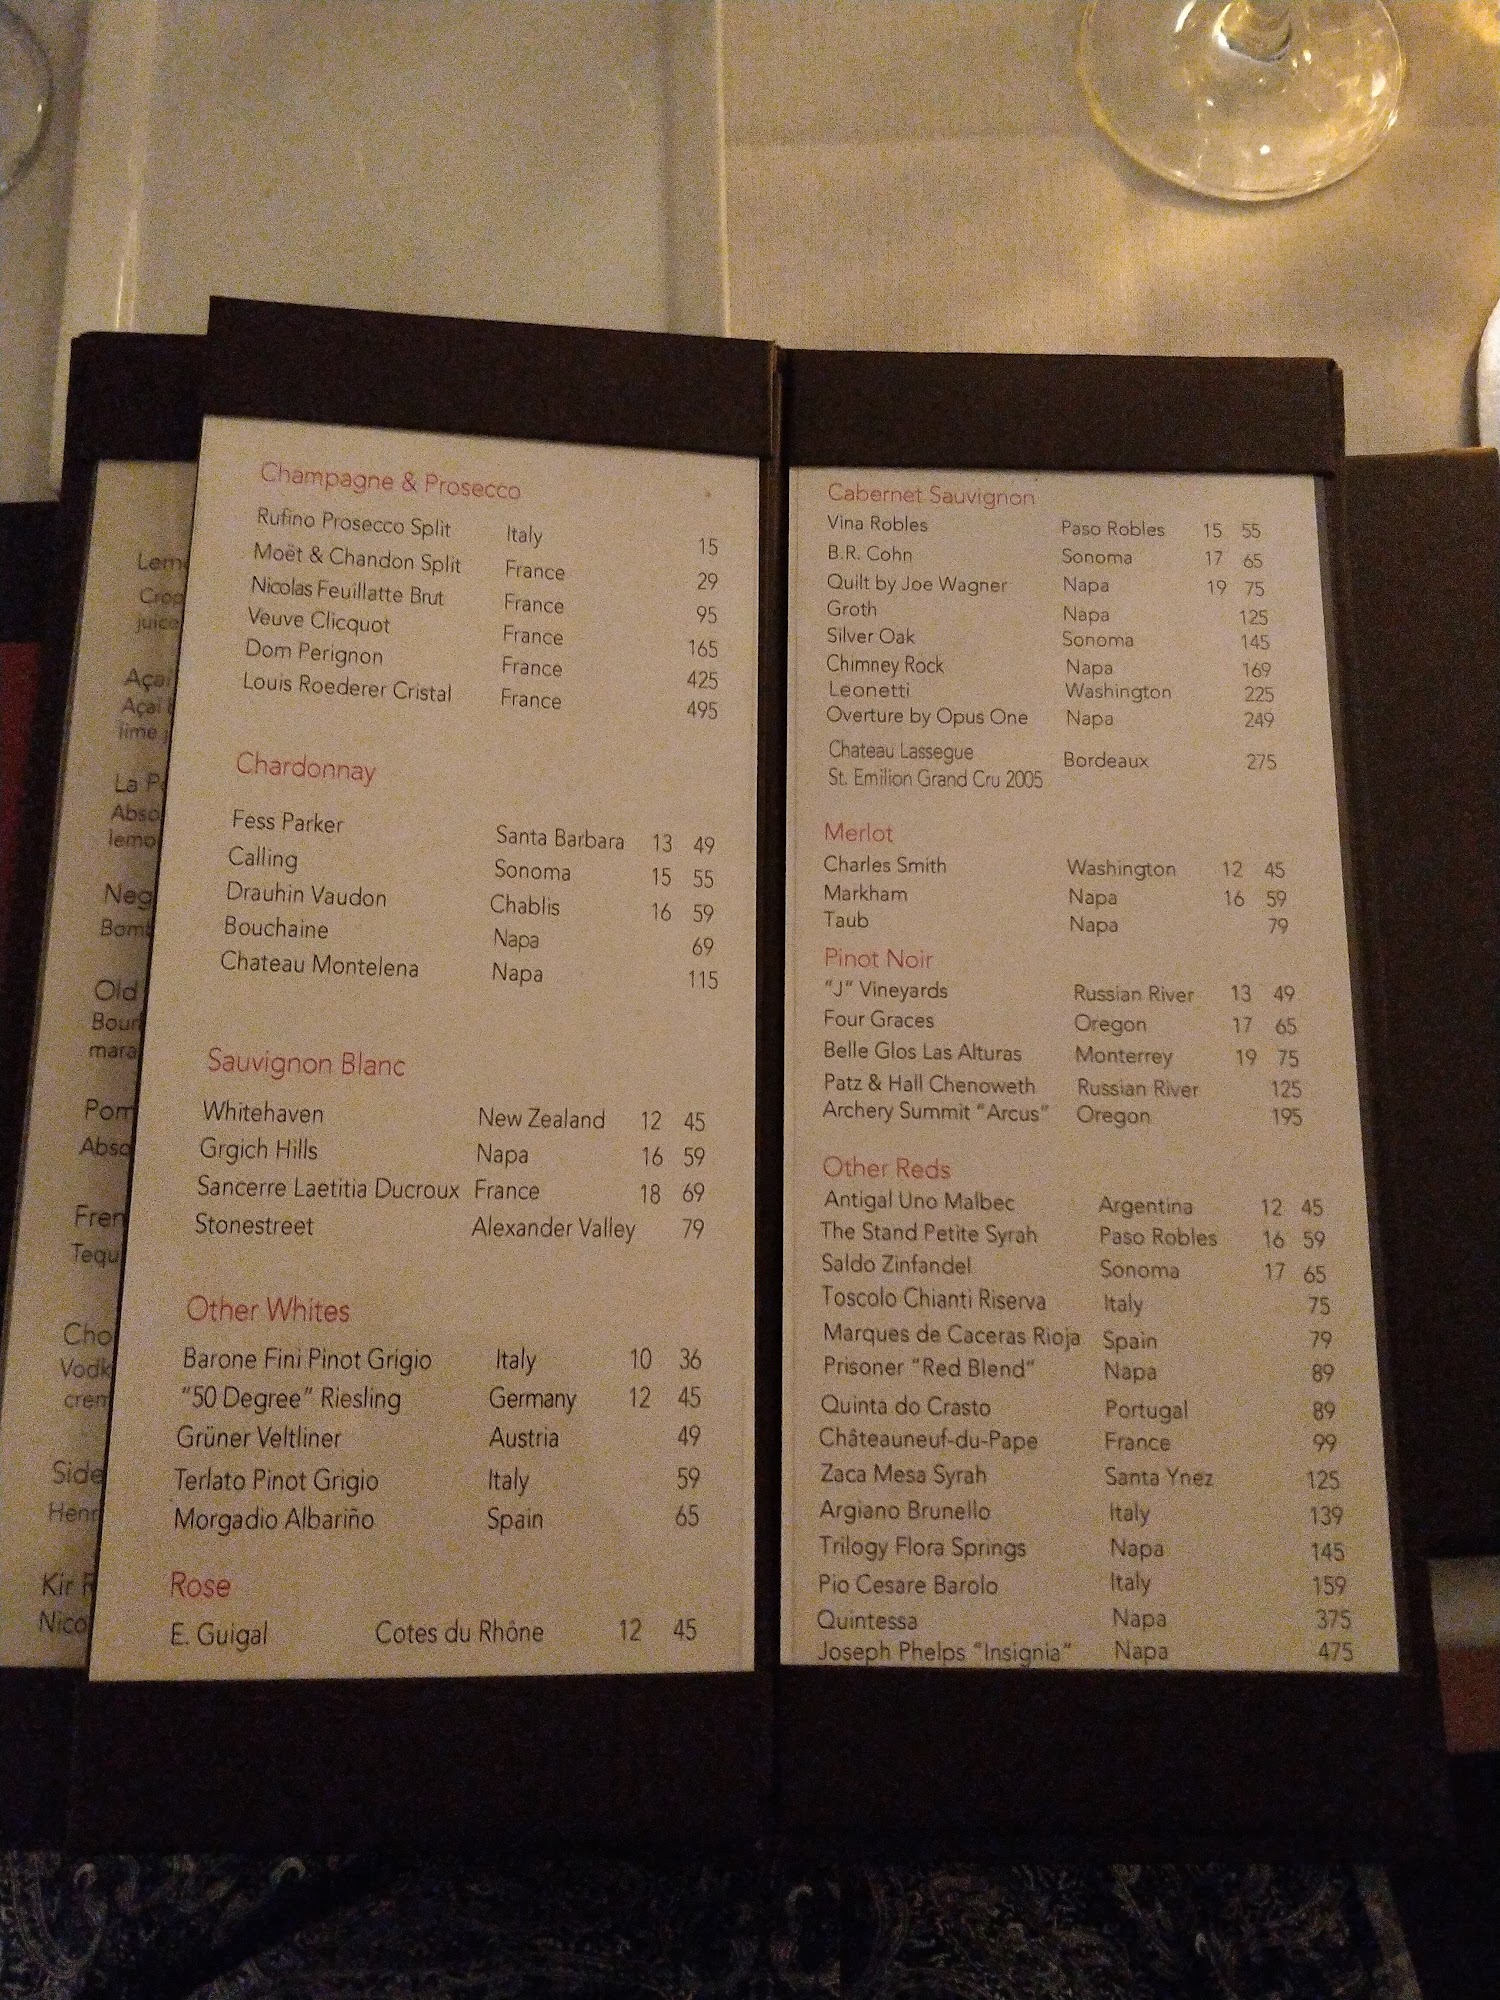 Champagne & Prosecco
Rufino Prosecco Split Italy 15
Moët & Chandon Split France 29
Nicolas Feuillatte Brut France 95
Veuve Clicquot France 165
Dom Perignon France 425
Louis Roederer Cristal France 495
Chardonnay
Fess Parker Santa Barbara 13 49
Calling Sonoma 15 55
Drauhin Vaudon Chablis 16 59
Bouchaine Napa 69
Chateau Montelena Napa 115
Sauvignon Blanc
Whitehaven New Zealand 12 45
Grgich Hills Napa 16 59
Sancerre Laetitia Ducroux France 18 69
Stonestreet Alexander Valley 79
Other Whites
Barone Fini Pinot Grigio Italy 10 36
"50 Degree" Riesling Germany 12 45
Grüner Veltliner Austria 49
Terlato Pinot Grigio Italy 59
Morgadio Albariño Spain 65
Rose
E. Guigal Cotes du Rhône 12 45
Cabernet Sauvignon
Vina Robles Paso Robles 15 55
B.R. Cohn Sonoma 17 65
Quilt by Joe Wagner Napa 19 75
Groth Napa 125
Silver Oak Sonoma 145
Chimney Rock Napa 169
Leonetti Washington 225
Overture by Opus One Napa 249
Chateau Lassegue Bordeaux 275
St. Emilion Grand Cru 2005
Merlot
Charles Smith Washington 12 45
Markham Napa 16 59
Taub Napa 79
Pinot Noir
"J" Vineyards Russian River 13 49
Four Graces Oregon 17 65
Belle Glos Las Alturas Monterrey 19 75
Patz & Hall Chenoweth Russian River 125
Archery Summit "Arcus" Oregon 195
Other Reds
Antigal Uno Malbec Argentina 12 45
The Stand Petite Syrah Paso Robles 16 59
Saldo Zinfandel Sonoma 17 65
Toscolo Chianti Riserva Italy 75
Marques de Caceras Rioja Spain 79
Prisoner "Red Blend" Napa 89
Quinta do Crasto Portugal 89
Châteauneuf-du-Pape France 99
Zaca Mesa Syrah Santa Ynez 125
Argiano Brunello Italy 139
Trilogy Flora Springs Napa 145
Pio Cesare Barolo Italy 159
Quintessa Napa 375
Joseph Phelps "Insignia" Napa 475